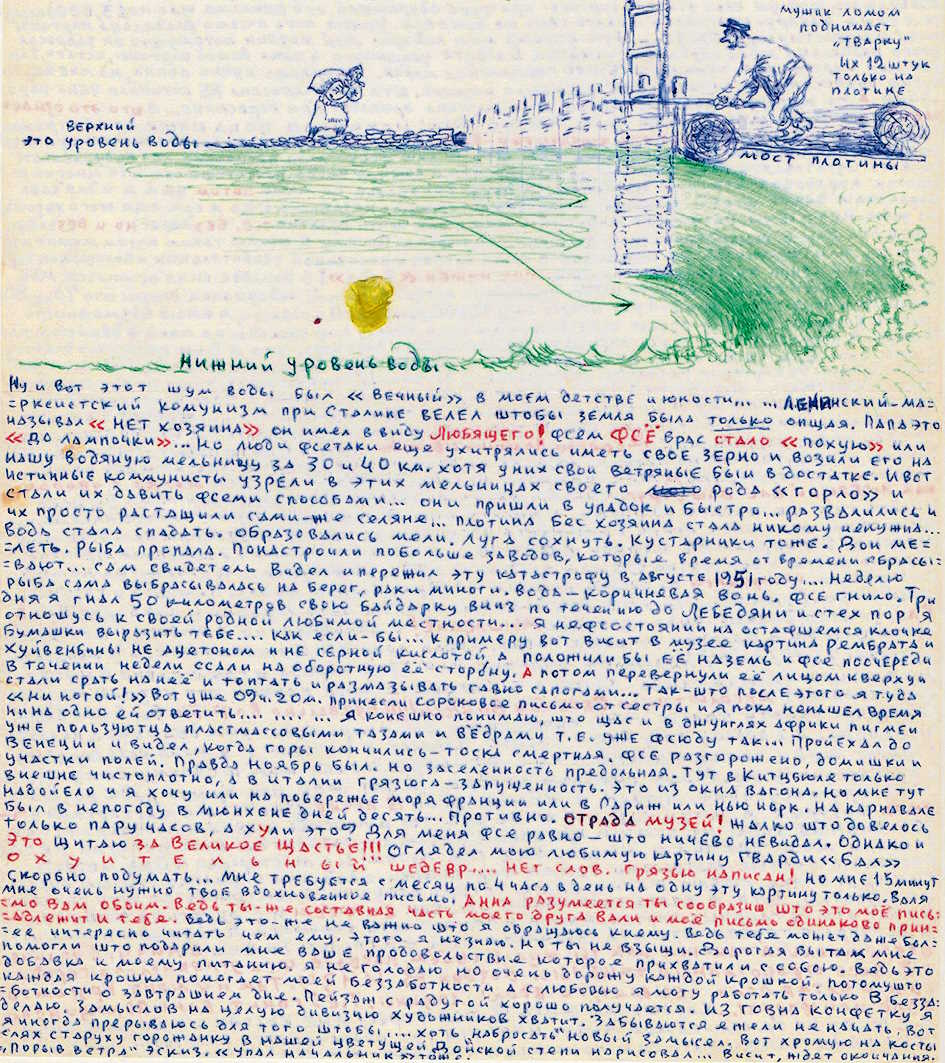 мушик ломом
поднимает
„тварку"
их 12 штук
только на
плотине
верхний
это уровень воды
мост плотины
Нижний уровень воды
Ну и вот этот шум воды был «вечный» в моем детстве и юности... ... Ленинский-ма=
=рксистский комунизм при Сталине велел штобы земля была только опщая. Папа это
называл «нет хозяина» он имел в виду любящего! фсем фсё врас стало «похую» или
«до лампочки»... Но люди фсетаки еще ухитрялись иметь своё зерно и возили его на
нашу водяную мельницу за 30 и 40 км. хотя у них свои ветряные были в достатке. И вот
истинные коммунисты узрели в этих мельницах своего рода «горло»
стали их давить фсеми способами... они пришли в упадок и быстро... развалились и
их просто растащили сами-же селяне... плотина бес хозяина стала никому ненужна...
Вода стала спадать. образовались мели. Луга сохнуть. Кустарники тоже. Дон ме=
=леть. Рыба пропала. Понастроили побольше заводов, которые время от времени сбрасы=
=вают... сам свидетель видел и пережил эту катастрофу в августе 1951 году... Неделю
рыба сама выбрасывалась на берег, раки миноги. вода – коричневая вонь. фсе гнило. Три
дня я гнал 50 километров свою байдарку вниз по течению до Лебедяни и с тех пор я
отношусь к своей родной любимой местности.... я нефсостоянии на остафшемся клочке
бумашки выразить тебе.... как если-бы... к примеру вот висит в музее картина рембрата и
хуйвенбины не ацетоном и не серной кислотой а положили бы её наземь и фсе поочереди
в течении недели ссали на оборотную её сторону. А потом перевернули её лицом кверху и
стали срать на неё и топтать и размазывать гавно сапогами... Так-што после этого я туда
«ни ногой!» Вот уже 09ч. 20м. принесли сороковое письмо от сестры и я пока ненашел время
нина одно ей ответить.... .... .... Я конешно понимаю, што щас и в джунглях африки пигмеи
уже пользуютца пластмассовыми тазами и вёдрами т.е. уже фсюду так... Проехал до
Венеции и видел, когда горы кончились – тоска смертная. фсе разгорожено, домишки и
участки полей. Правда ноябрь был. но заселенность предельная. Тут в Китцбюле только
внешне чистоплотно, а в италии грязюга-запущенность. Это из окна вагона. Но мне тут
надоело и я хочу или на побережье моря франции или в Париж или нью йорк. На карнавале
был в непогоду в Мюнхене дней десять... Противно. отрада музей! жалко што довелось
только пару часов, а хули это? Для меня фсе равно – што ничево невидал. Однако и
это щитаю за великое щастье!!! Оглядел мою любимую картину Гварди «Бал»
охуительный шедевр.... нет слов. грязью написан! Но мне 15 минут
скорбно подумать... мне требуется с месяц по 4 часа вдень на одну эту картину только. Валя
мне очень нужно твое вдохновенное письмо. Анна разумеется ты сообразиш што это моё пись=
=мо вам обоим. Ведь ты-же составная часть моего друга Вали и моё письмо одинаково прин=
=адлежит и тебе. Ведь это-же не важно што я обращаюсь к нему. Ведь тебе может даже бол=
=ее интересно читать чем ему. этого я незнаю. но ты не взыщи. Дорогая вы так мне
помогли што подарили мне ваше продовольствие которое прихватили с собою. Ведь это
добавка к моему питанию. я не голодаю но очень дорожу каждой крошкой. потомушто
каждая крошка помогает моей беззаботности а с любовью я могу работать только в безза=
=ботности о завтрашнем дне. Пейзаж с радугой хорошо получается. Из говна конфетку я
делаю. Замыслов на целую дивизию художников хватит. Забываются ежели не начать. Вот
я иногда прерываюсь для того штобы.... хоть „набросать" новый замысел. Вот хромую на косты
лях старуху горожанку в нашей цветущей Донской степи нарисовал... Висит, ждет окончания
„Порыв ветра" эскиз. «Упал начальник» тоже.